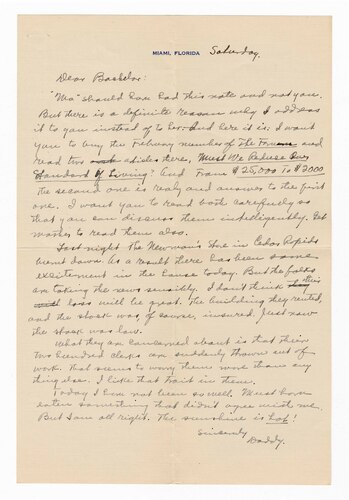 MIAMI, FLORIDA Saturday.
Dear Bachelor:
"Ma" should have had this note and not you.
But there is a definite reason why I address
it to you instead of to her. And here it is: I want
you to buy the February number of The Forum and
read two articles there, Must We Reduce Our
Standard Of Living? And From $25,000 To $2000
The second one is really and answer to the first
one. I want you to read both carefully so
that you can discuss them intelligently. Get
mother to read them also.
Last night The Newman's Store in Cedar Rapids
went down. As a result there has been some
excitement in the house today. But the folks
are taking the news sensibly. I don't think their
loss will be great. The building they rented,
and the stock was of course, insured. Just now
the stock was low.
What they are concerned about is that their
two hundred clerks are suddenly thrown out of
work. That seems to worry them more than any
thing else. I like that trait in them.
Today I have not been so well. Must have
eaten something that didn't agree with me.
But I am all right. The sunshine is hot!
Sincerely
Daddy.